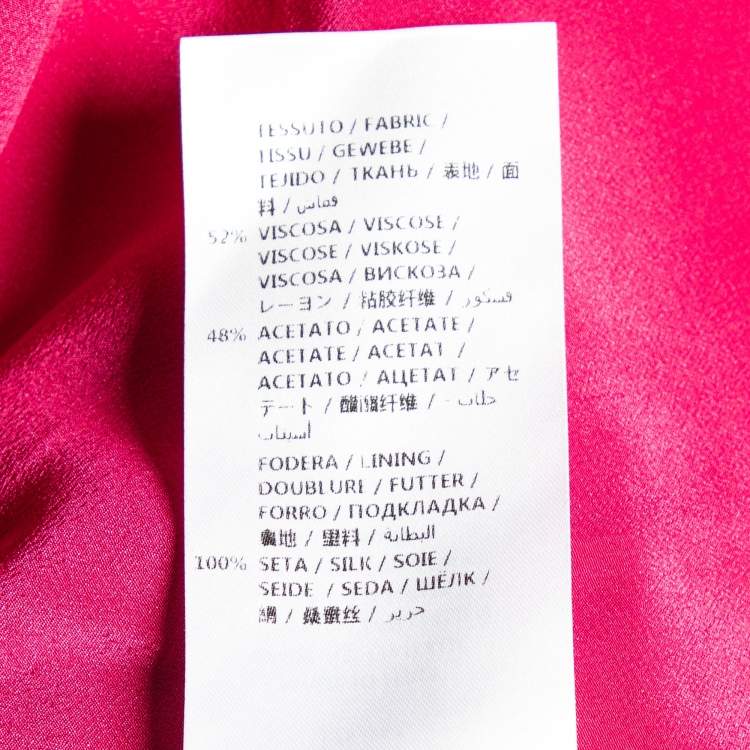 TESSUTO / FABRIC /
TISSU / GEWEBE /
TEJIDO / ТКАНЬ / 表地 / 面
料 / قماش
52% VISCOSA / VISCOSE /
VISCOSE / VISKOSE /
VISCOSA / ВИСКОЗА /
レーヨン / 粘胶纤维 / فسكوز
48% ACETATO / ACETATE /
ACETATE / ACETAT /
ACETATO / АЦЕТАТ / アセ
テート / 醋酯纤维 /
FODERA / LINING /
DOUBLURE / FUTTER /
FORRO / ПОДКЛАДКА /
裏地 / 里料 / البطانة
100% SETA / SILK / SOIE /
SEIDE / SEDA / ШЁЛК /
絹 / 丝 / حرير